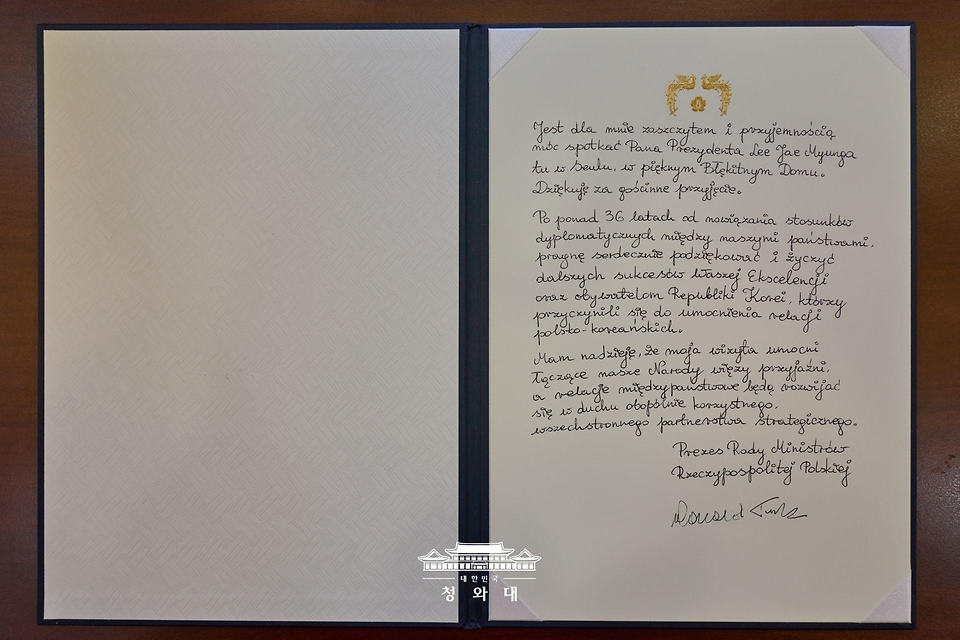 Jest dla mnie zaszczytem i przyjemnością
móc spotkać Pana Prezydenta Lee Jae Myunga
tu w Seulu, w pięknym Błękitnym Domu.
Dziękuję za gościnne przyjęcie.
Po ponad 36 latach od nawiązania stosunków
dyplomatycznych między naszymi państwami,
pragnę serdecznie podziękować i życzyć
dalszych sukcesów Waszej Ekscelencji
oraz obywatelom Republiki Korei, którzy
przyczynili się do umocnienia relacji
polsko-koreańskich.
Mam nadzieję, że moja wizyta umocni
łączące nasze Narody więzy przyjaźni,
a relacje międzypaństwowe będą rozwijać
się w duchu obopólnie korzystnego,
wszechstronnego partnerstwa strategicznego.
Prezes Rady Ministrów
Rzeczypospolitej Polskiej
Donald Tusk
대한민국
청와대